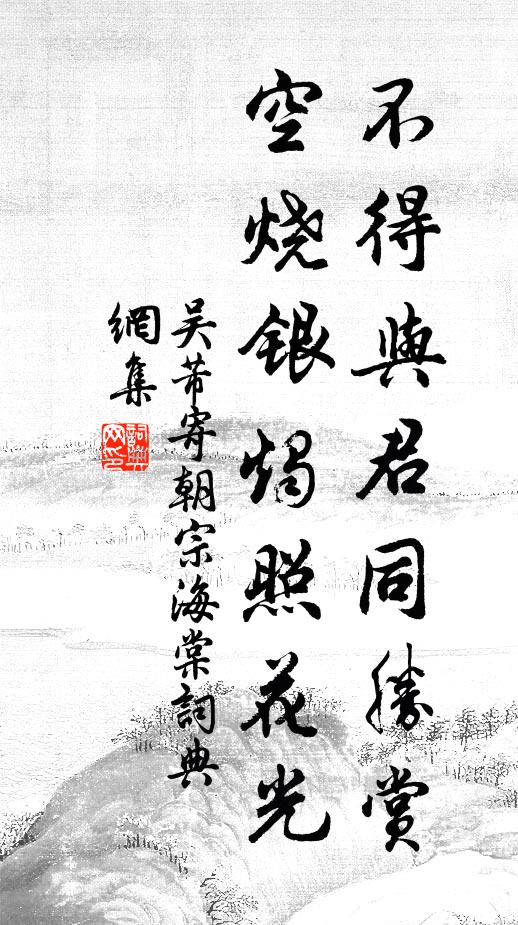 不得與君同勝賞
空烧銀燭照花光
吴芾寄朝宗海棠詞典
網集